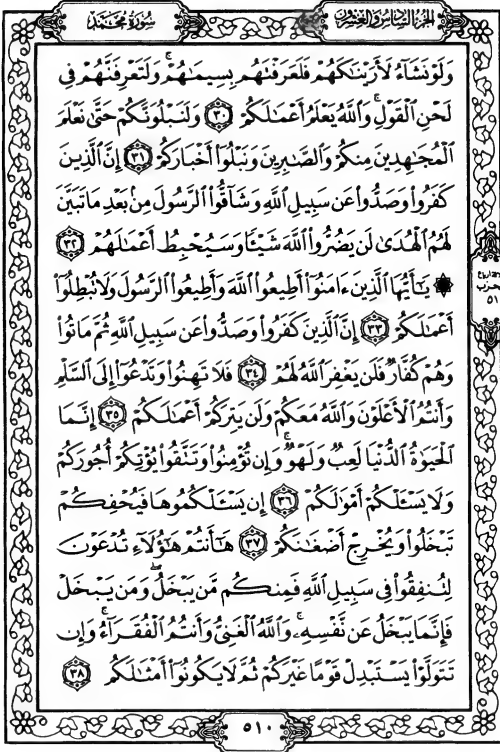 سُورَةُ مُحَمَّدٍ
الجزء السادس والعشرون
وَلَوْ نَشَآءُ لَأَرَيْنَٰكَهُمْ فَلَعَرَفْتَهُم بِسِيمَٰهُمْ ۚ وَلَتَعْرِفَنَّهُمْ فِى
لَحْنِ ٱلْقَوْلِ ۚ وَٱللَّهُ يَعْلَمُ أَعْمَٰلَكُمْ ٣٠ وَلَنَبْلُوَنَّكُمْ حَتَّىٰ نَعْلَمَ
ٱلْمُجَٰهِدِينَ مِنكُمْ وَٱلصَّٰبِرِينَ وَنَبْلُوَا۟ أَخْبَارَكُمْ ٣١ إِنَّ ٱلَّذِينَ
كَفَرُوا۟ وَصَدُّوا۟ عَن سَبِيلِ ٱللَّهِ وَشَآقُّوا۟ ٱلرَّسُولَ مِنۢ بَعْدِ مَا تَبَيَّنَ
لَهُمُ ٱلْهُدَىٰ لَن يَضُرُّوا۟ ٱللَّهَ شَيْـًٔا وَسَيُحْبِطُ أَعْمَٰلَهُمْ ٣٢
۞ يَٰٓأَيُّهَا ٱلَّذِينَ ءَامَنُوٓا۟ أَطِيعُوا۟ ٱللَّهَ وَأَطِيعُوا۟ ٱلرَّسُولَ وَلَا تُبْطِلُوٓا۟
أَعْمَٰلَكُمْ ٣٣ إِنَّ ٱلَّذِينَ كَفَرُوا۟ وَصَدُّوا۟ عَن سَبِيلِ ٱللَّهِ ثُمَّ مَاتُوا۟
وَهُمْ كُفَّارٌ فَلَن يَغْفِرَ ٱللَّهُ لَهُمْ ٣٤ فَلَا تَهِنُوا۟ وَتَدْعُوٓا۟ إِلَى ٱلسَّلْمِ
وَأَنتُمُ ٱلْأَعْلَوْنَ وَٱللَّهُ مَعَكُمْ وَلَن يَتِرَكُمْ أَعْمَٰلَكُمْ ٣٥ إِنَّمَا
ٱلْحَيَوٰةُ ٱلدُّنْيَا لَعِبٌ وَلَهْوٌ ۚ وَإِن تُؤْمِنُوا۟ وَتَتَّقُوا۟ يُؤْتِكُمْ أُجُورَكُمْ
وَلَا يَسْـَٔلْكُمْ أَمْوَٰلَكُمْ ٣٦ إِن يَسْـَٔلْكُمُوهَا فَيُحْفِكُمْ
تَبْخَلُوا۟ وَيُخْرِجْ أَضْغَٰنَكُمْ ٣٧ هَٰٓأَنتُمْ هَٰٓؤُلَآءِ تُدْعَوْنَ
لِتُنفِقُوا۟ فِى سَبِيلِ ٱللَّهِ فَمِنكُم مَّن يَبْخَلُ ۖ وَمَن يَبْخَلْ
فَإِنَّمَا يَبْخَلُ عَن نَّفْسِهِۦ ۚ وَٱللَّهُ ٱلْغَنِىُّ وَأَنتُمُ ٱلْفُقَرَآءُ ۚ وَإِن
تَتَوَلَّوْا۟ يَسْتَبْدِلْ قَوْمًا غَيْرَكُمْ ثُمَّ لَا يَكُونُوٓا۟ أَمْثَٰلَكُم ٣٨
حزب
٥١
٥١٠